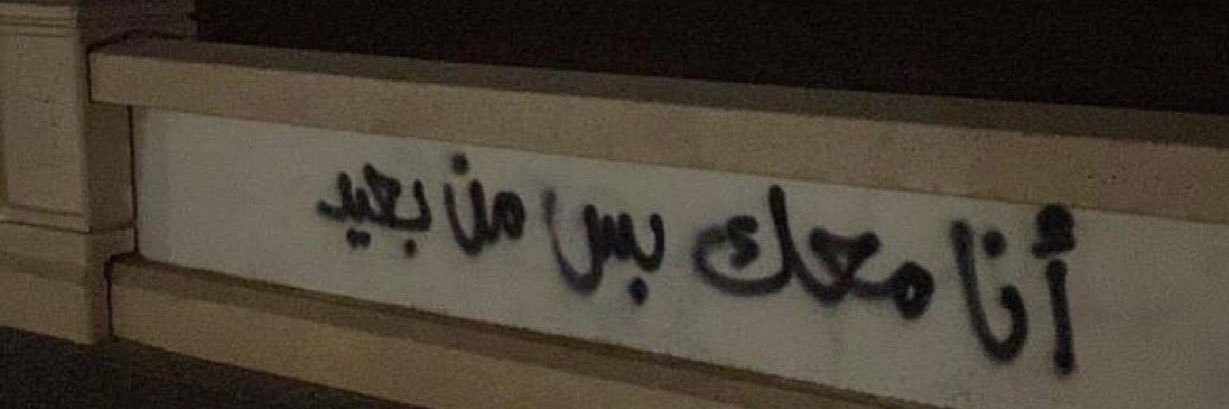 أنا معك بس من بعيد